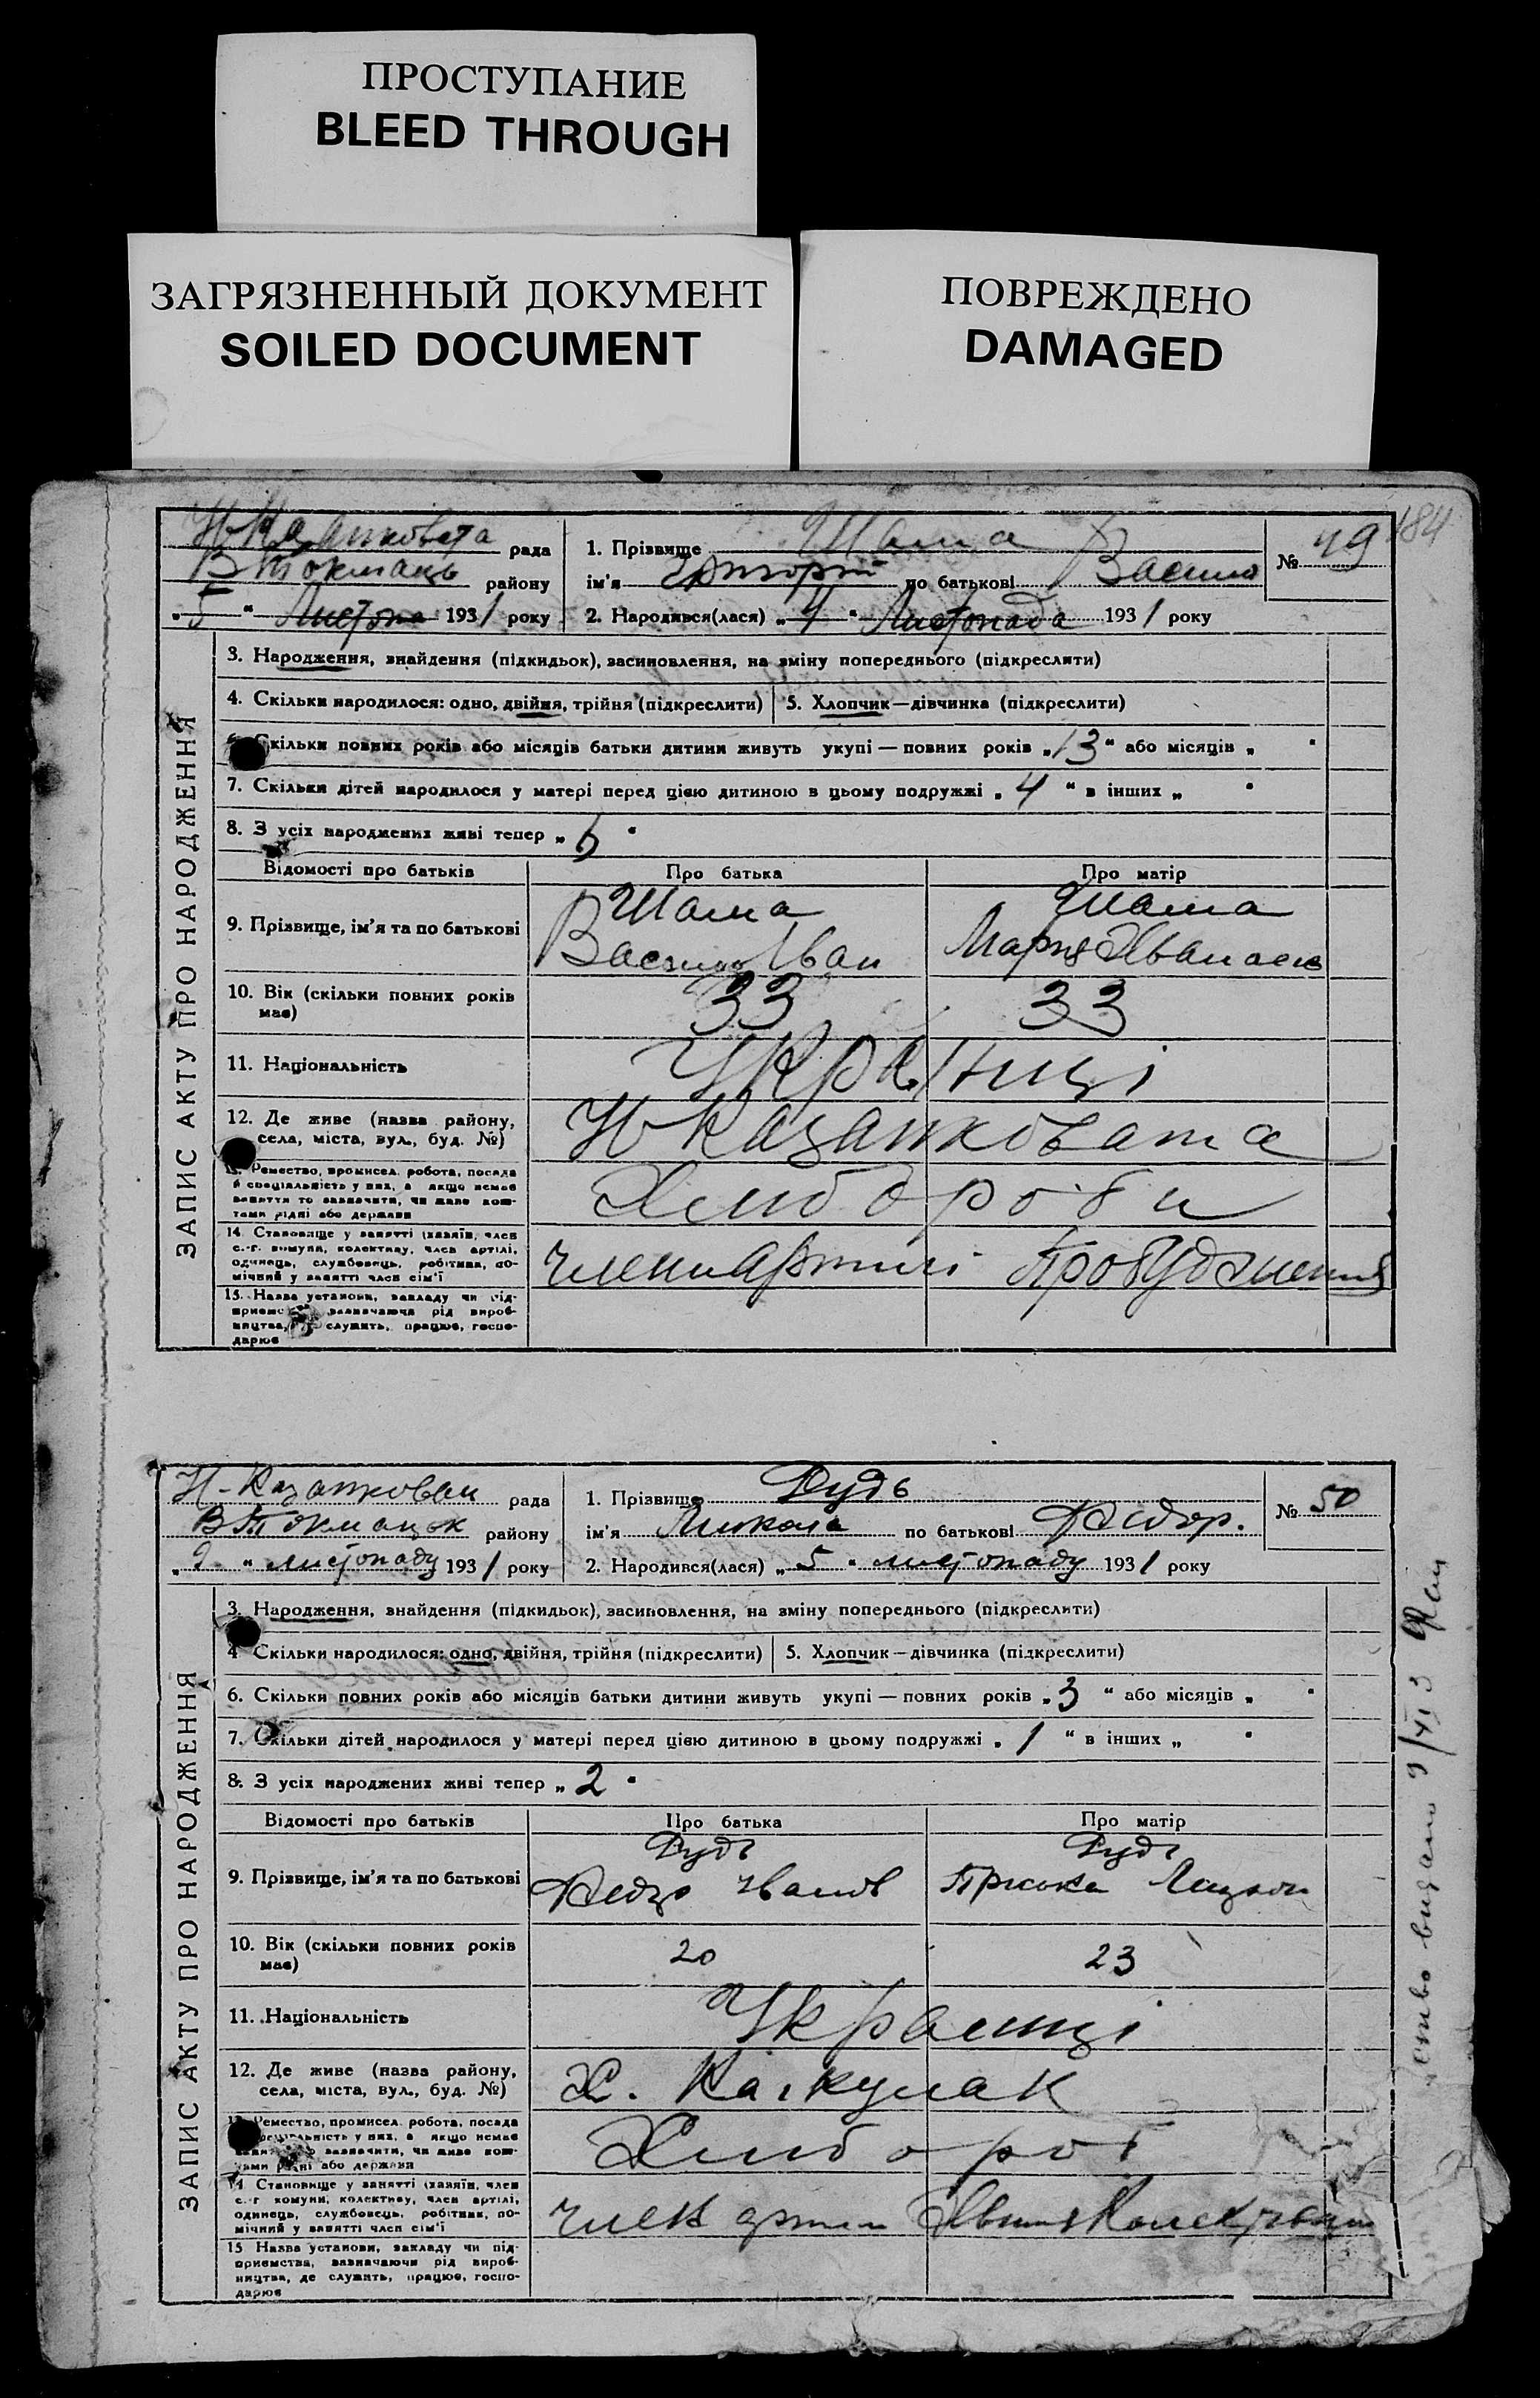 ПРОСТУПАНИЕ
BLEED THROUGH
ЗАГРЯЗНЕННЫЙ ДОКУМЕНТ
SOILED DOCUMENT
ПОВРЕЖДЕНО
DAMAGED
184
ЗАПИС АКТУ ПРО НАРОДЖЕННЯ
Н-Казанковата рада
В Токмаць району
„5“ Листопа 1931 року
1. Прізвище Шама
ім'я Григорій по батькові Васило
№ 49
2. Народився(лася) „4“ Листопада 1931 року
3. Народження, знайдення (підкидьок), засиновлення, на зміну попереднього (підкреслити)
4. Скільки народилося: одно, двійня, трійня (підкреслити) 5. Хлопчик—дівчинка (підкреслити)
Скільки повних років або місяців батьки дитини живуть укупі — повних років „13“ або місяців „ “
7. Скільки дітей народилося у матері перед цією дитиною в цьому подружжі „4“ в інших „ “
8. З усіх народжених живі тепер „ “
Відомості про батьків Про батька Про матір
9. Прізвище, ім'я та по батькові
Шама Шама
Васило Іван Мария
10. Вік (скільки повних років має) 33 33
11. Національність Українці
12. Де живе (назва району, села, міста, вул., буд. №) Н Казанковата
Ремество, промисел, робота, посада
й спеціальність у них, а якщо немає
заняття то зазначити, чи живе кош-
тами рідні або держави
Хлибороби
14 Становище у занятті (хазяїн, член
с.-г. комуни, колективу, член артілі,
одинець, службовець, робітник, по-
мічний у занятті член сім'ї
члени Артилі Пробудження
15. Назва установи, закладу чи під-
приємс зазначаючи рід вироб-
ництва, служить, працює, госпо-
дарює
ЗАПИС АКТУ ПРО НАРОДЖЕННЯ
Н-Казанковат рада
В Токмацьк району
„9“ листопаду 1931 року
1. Прізвище Дудь
ім'я Микола по батькові Федор.
№ 50
2. Народився(лася) „5“ листопаду 1931 року
3. Народження, знайдення (підкидьок), засиновлення, на зміну попереднього (підкреслити)
4 Скільки народилося: одно, двійня, трійня (підкреслити) 5. Хлопчик—дівчинка (підкреслити)
6. Скільки повних років або місяців батьки дитини живуть укупі — повних років „3“ або місяців „ “
7. Скільки дітей народилося у матері перед цією дитиною в цьому подружжі „1“ в інших „ “
8. З усіх народжених живі тепер „2“
Відомості про батьків Про батька Про матір
9. Прізвище, ім'я та по батькові
Дудь Дудь
Федір Иванов Приська
10. Вік (скільки повних років має) 20 23
11. Національність Украинці
12. Де живе (назва району, села, міста, вул., буд. №) Х. Каїнкулак
Ремество, промисел, робота, посада
у них, а якщо немає
зазначити, чи живе кош-
тами рідні або держави
Хлибороб
14 Становище у занятті (хазяїн, член
с.-г комуни, колективу, член артілі,
одинець, службовець, робітник, по-
мічний у занятті член сім'ї
член артили
15 Назва установи, закладу чи під-
приємства, зазначаючи рід вироб-
ництва, де служить, працює, госпо-
дарює
видано